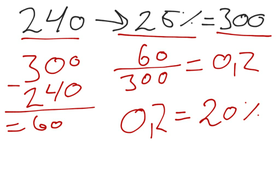 240 → 25% = 300
300
- 240
= 60
60/300 = 0,2
0,2 = 20%